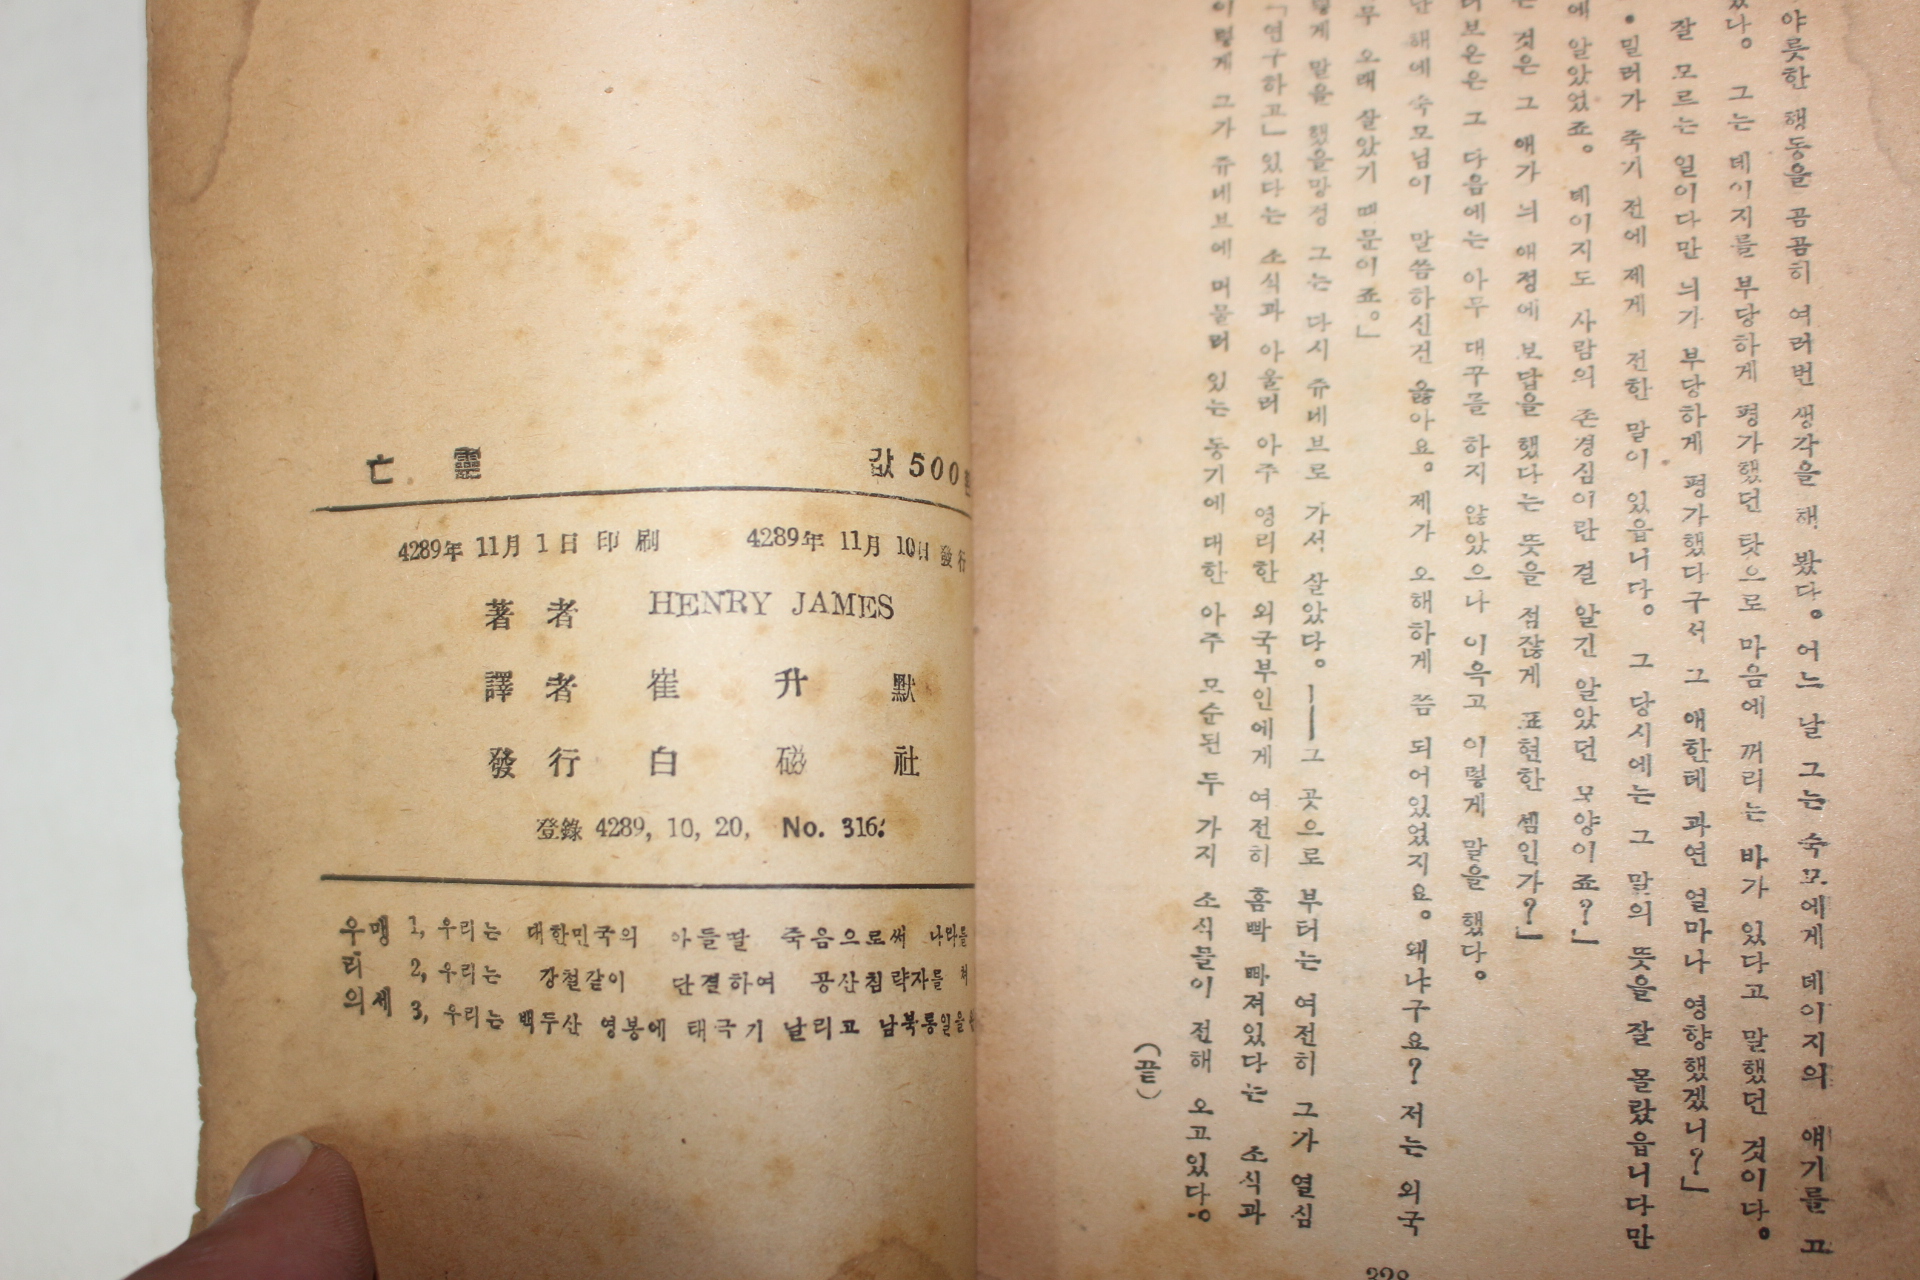 亡靈 값 500
4289年 11月 1日 印刷 4289年 11月 10日 發行
著者 HENRY JAMES
譯者 崔升默
發行 白磁社
登錄 4289, 10, 20, No. 316.
우리의 맹세
1, 우리는 대한민국의 아들딸 죽음으로써 나라를
2, 우리는 강철같이 단결하여 공산침략자를
3, 우리는 백두산 영봉에 태극기 날리고 남북통일을
야릇한 행동을 곰곰히 여러번 생각을 해 봤다。 어느 날 그는 숙모에게 데이지의 얘기를 끄
그는 데이지를 부당하게 평가했던 탓으로 마음에 꺼리는 바가 있다고 말했던 것이다。
잘 모르는 일이다만 늬가 부당하게 평가했다구서 그 애한테 과연 얼마나 영향했겠니?」
·밀러가 죽기 전에 제게 전한 말이 있읍니다。 그 당시에는 그 말의 뜻을 잘 몰랐읍니다만
에 알았었죠。 데이지도 사람의 존경심이란 걸 알긴 알았던 모양이죠?」
것은 그 애가 늬 애정에 보답을 했다는 뜻을 점잖게 표현한 셈인가?」
그 다음에는 아무 대꾸를 하지 않았으나 이윽고 이렇게 말을 했다。
해에 숙모님이 말씀하신건 옳아요。 제가 오해하게 쯤 되어있었지요。 왜냐구요? 저는 외국
오래 살았기 때문이죠。」
말을 했을망정 그는 다시 쥬네브로 가서 살았다。――그 곳으로 부터는 여전히 그가 열심
「연구하고」있다는 소식과 아울러 아주 영리한 외국부인에게 여전히 홈빡 빠져있다는 소식과
이렇게 그가 쥬네브에 머물러 있는 동기에 대한 아주 모순된 두 가지 소식들이 전해 오고있다。
(끝)
328